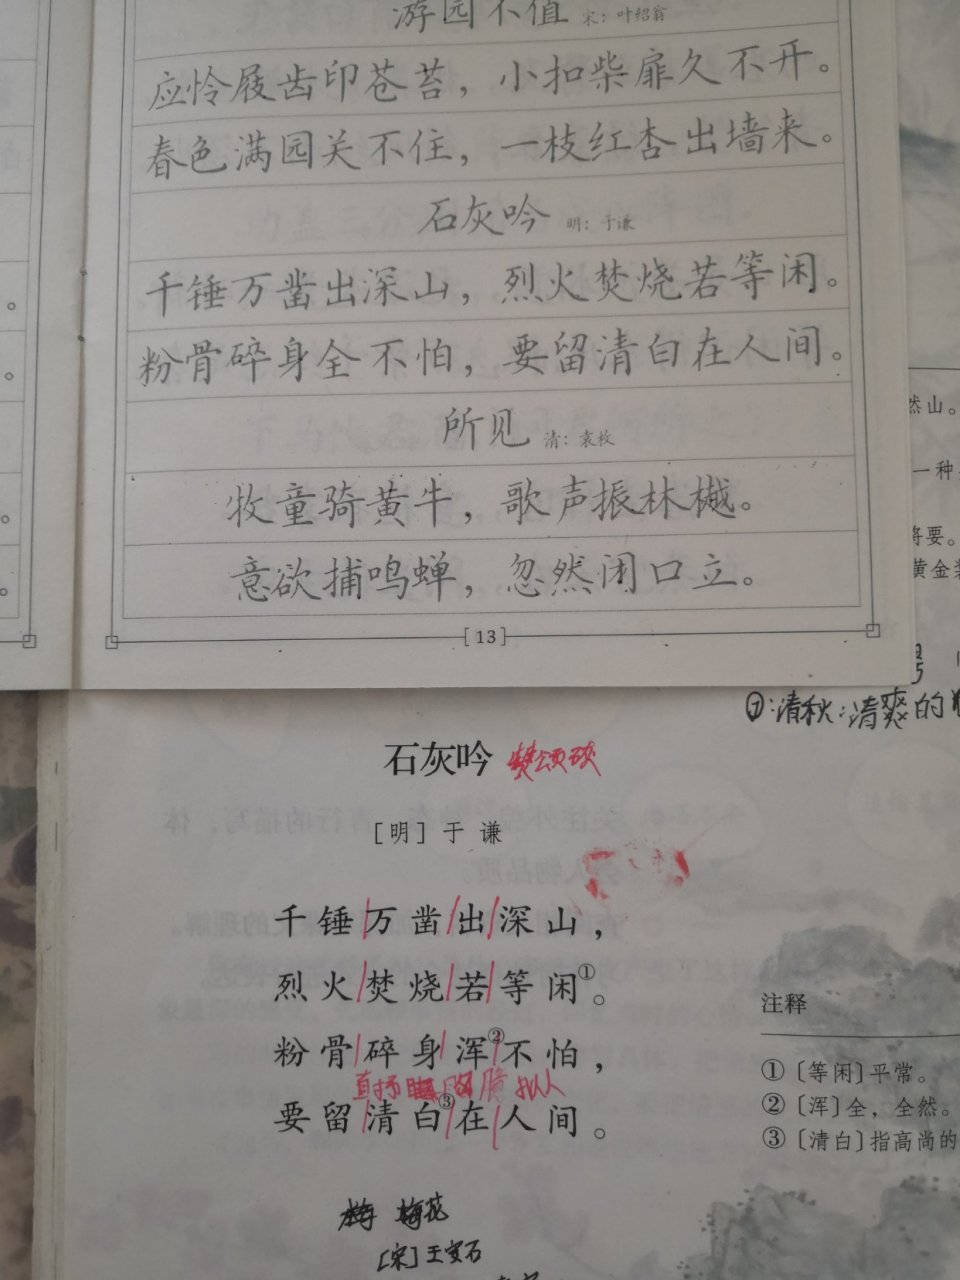 游园不值 宋：叶绍翁
应怜屐齿印苍苔，小扣柴扉久不开。
春色满园关不住，一枝红杏出墙来。
石灰吟 明：于谦
千锤万凿出深山，烈火焚烧若等闲。
粉骨碎身全不怕，要留清白在人间。
所见 清：袁枚
牧童骑黄牛，歌声振林樾。
意欲捕鸣蝉，忽然闭口立。
[13]
然山。
一种
将要。
黄金
⑦:清秋:清爽的
石灰吟 赞颂
[明] 于谦
千锤/万凿/出/深山，
烈火/焚烧/若/等闲①。
粉骨/碎身/浑②/不怕，
直抒 臆 拟人
要留/清白③/在/人间。
注释
①〔等闲〕平常。
②〔浑〕全，全然。
③〔清白〕指高尚的
梅花
[宋]王安石